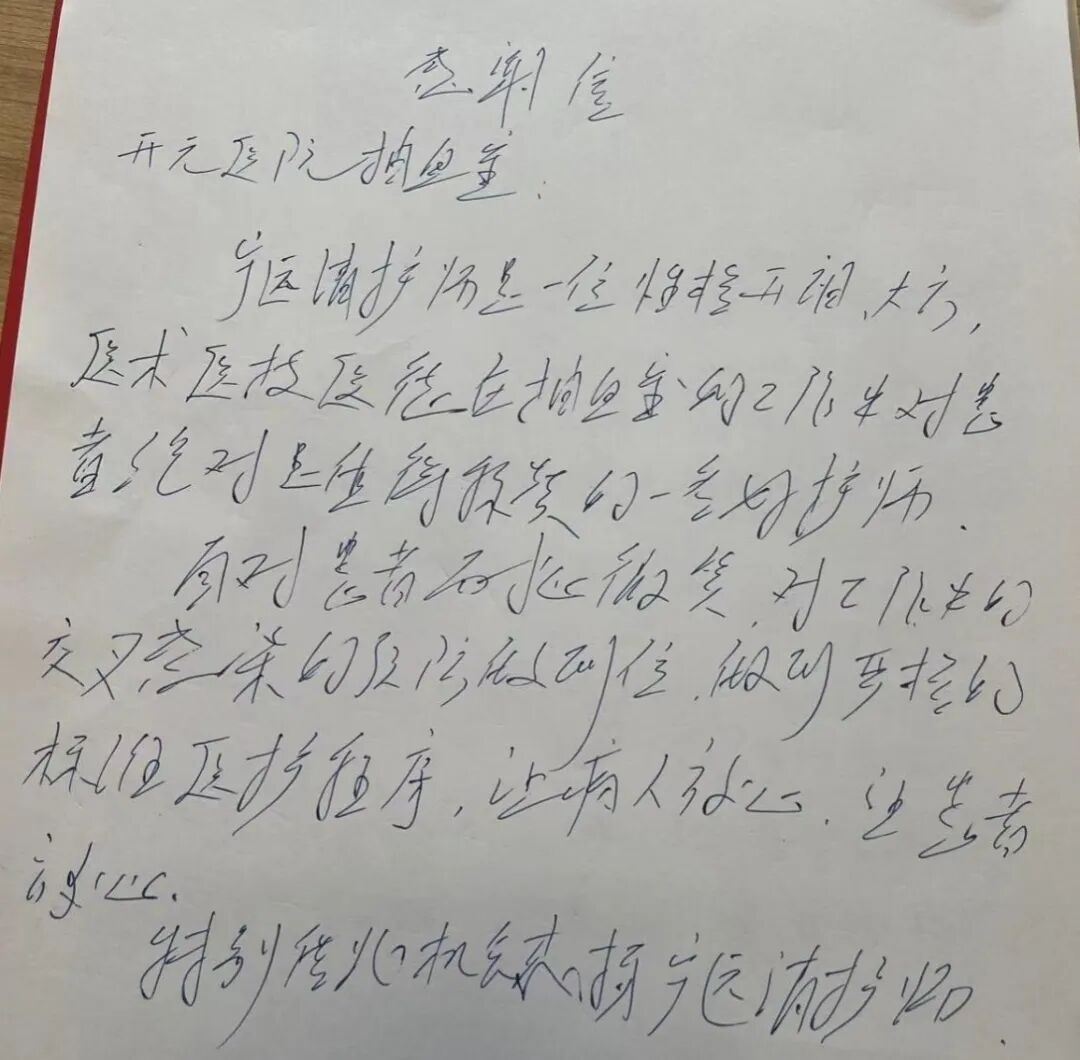 感谢信
开元医院抽血室:
护师是一位性格开朗、大方,
医术医技医德在抽血室的工作中对患
者绝对是值得授奖的一名好护师.
面对患者面对心微笑,对工作中的
交叉感染的预防做到位,做到严格的
标准医护程序,让病人放心,让患者
放心.
特别借此机会表扬清护师.